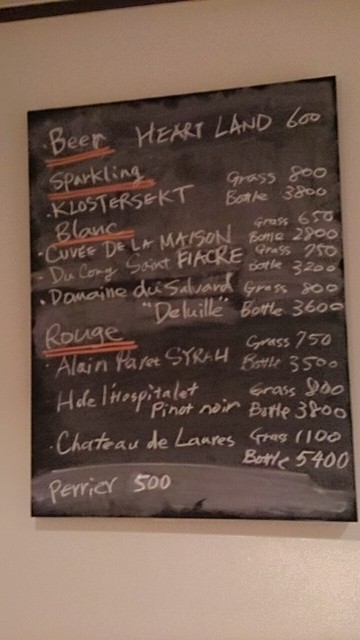 ·Beer HEARTLAND 600
Sparkling Grass 800
·KLOSTERSEKT Bottle 3800
Blanc Grass 650
·CUVÉE DE LA MAISON Bottle 2800
· Du Cory Saint FIACRE Grass 750
Bottle 3200
·Domaine du Salvard Grass 800
"Deluille" Bottle 3600
Rouge Grass 750
·Alain Paret SYRAH Bottle 3500
Hôte l'Hospitalet Grass 800
Pinot noir Bottle 3800
·Chateau de Laures Grass 1100
Bottle 5400
Perrier 500